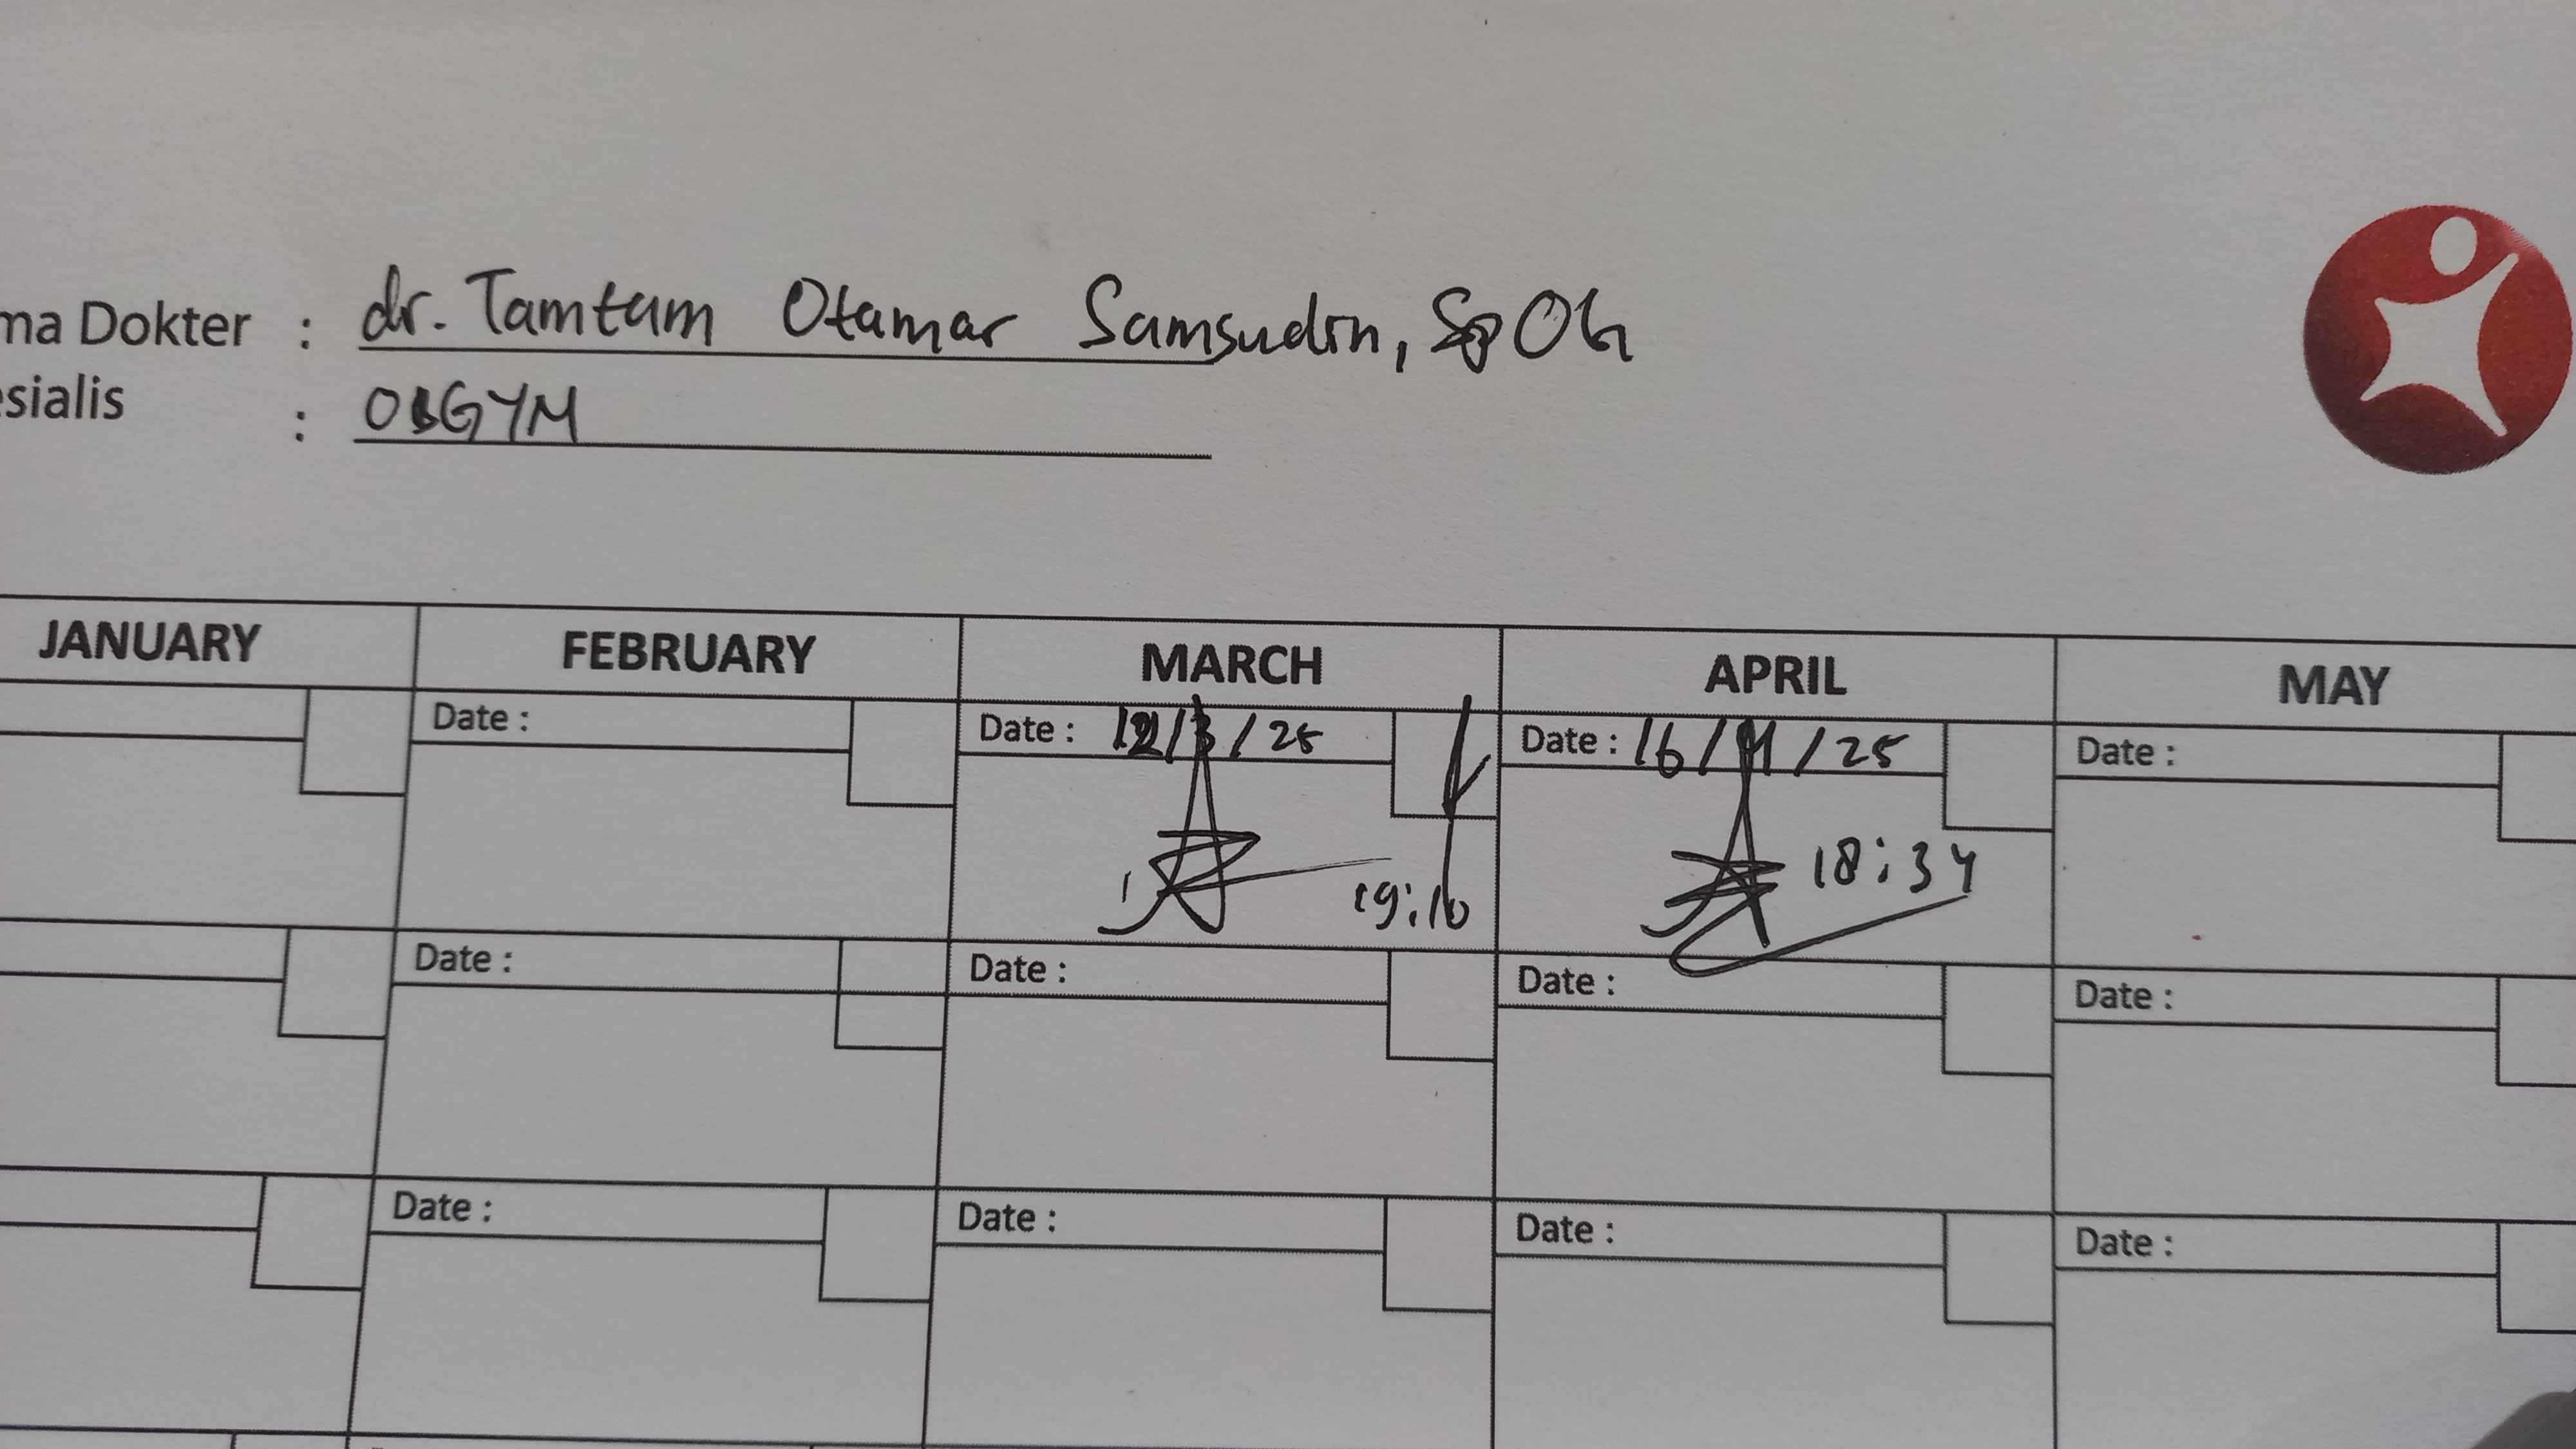 ma Dokter : dr. Tamtam Otamar Samsudin, SpOG
sialis : OBGYN
JANUARY FEBRUARY MARCH APRIL MAY
Date : Date : 12/3/25 Date : 16/4/25 Date :
19:10 18:34
Date : Date : Date : Date :
Date : Date : Date : Date :